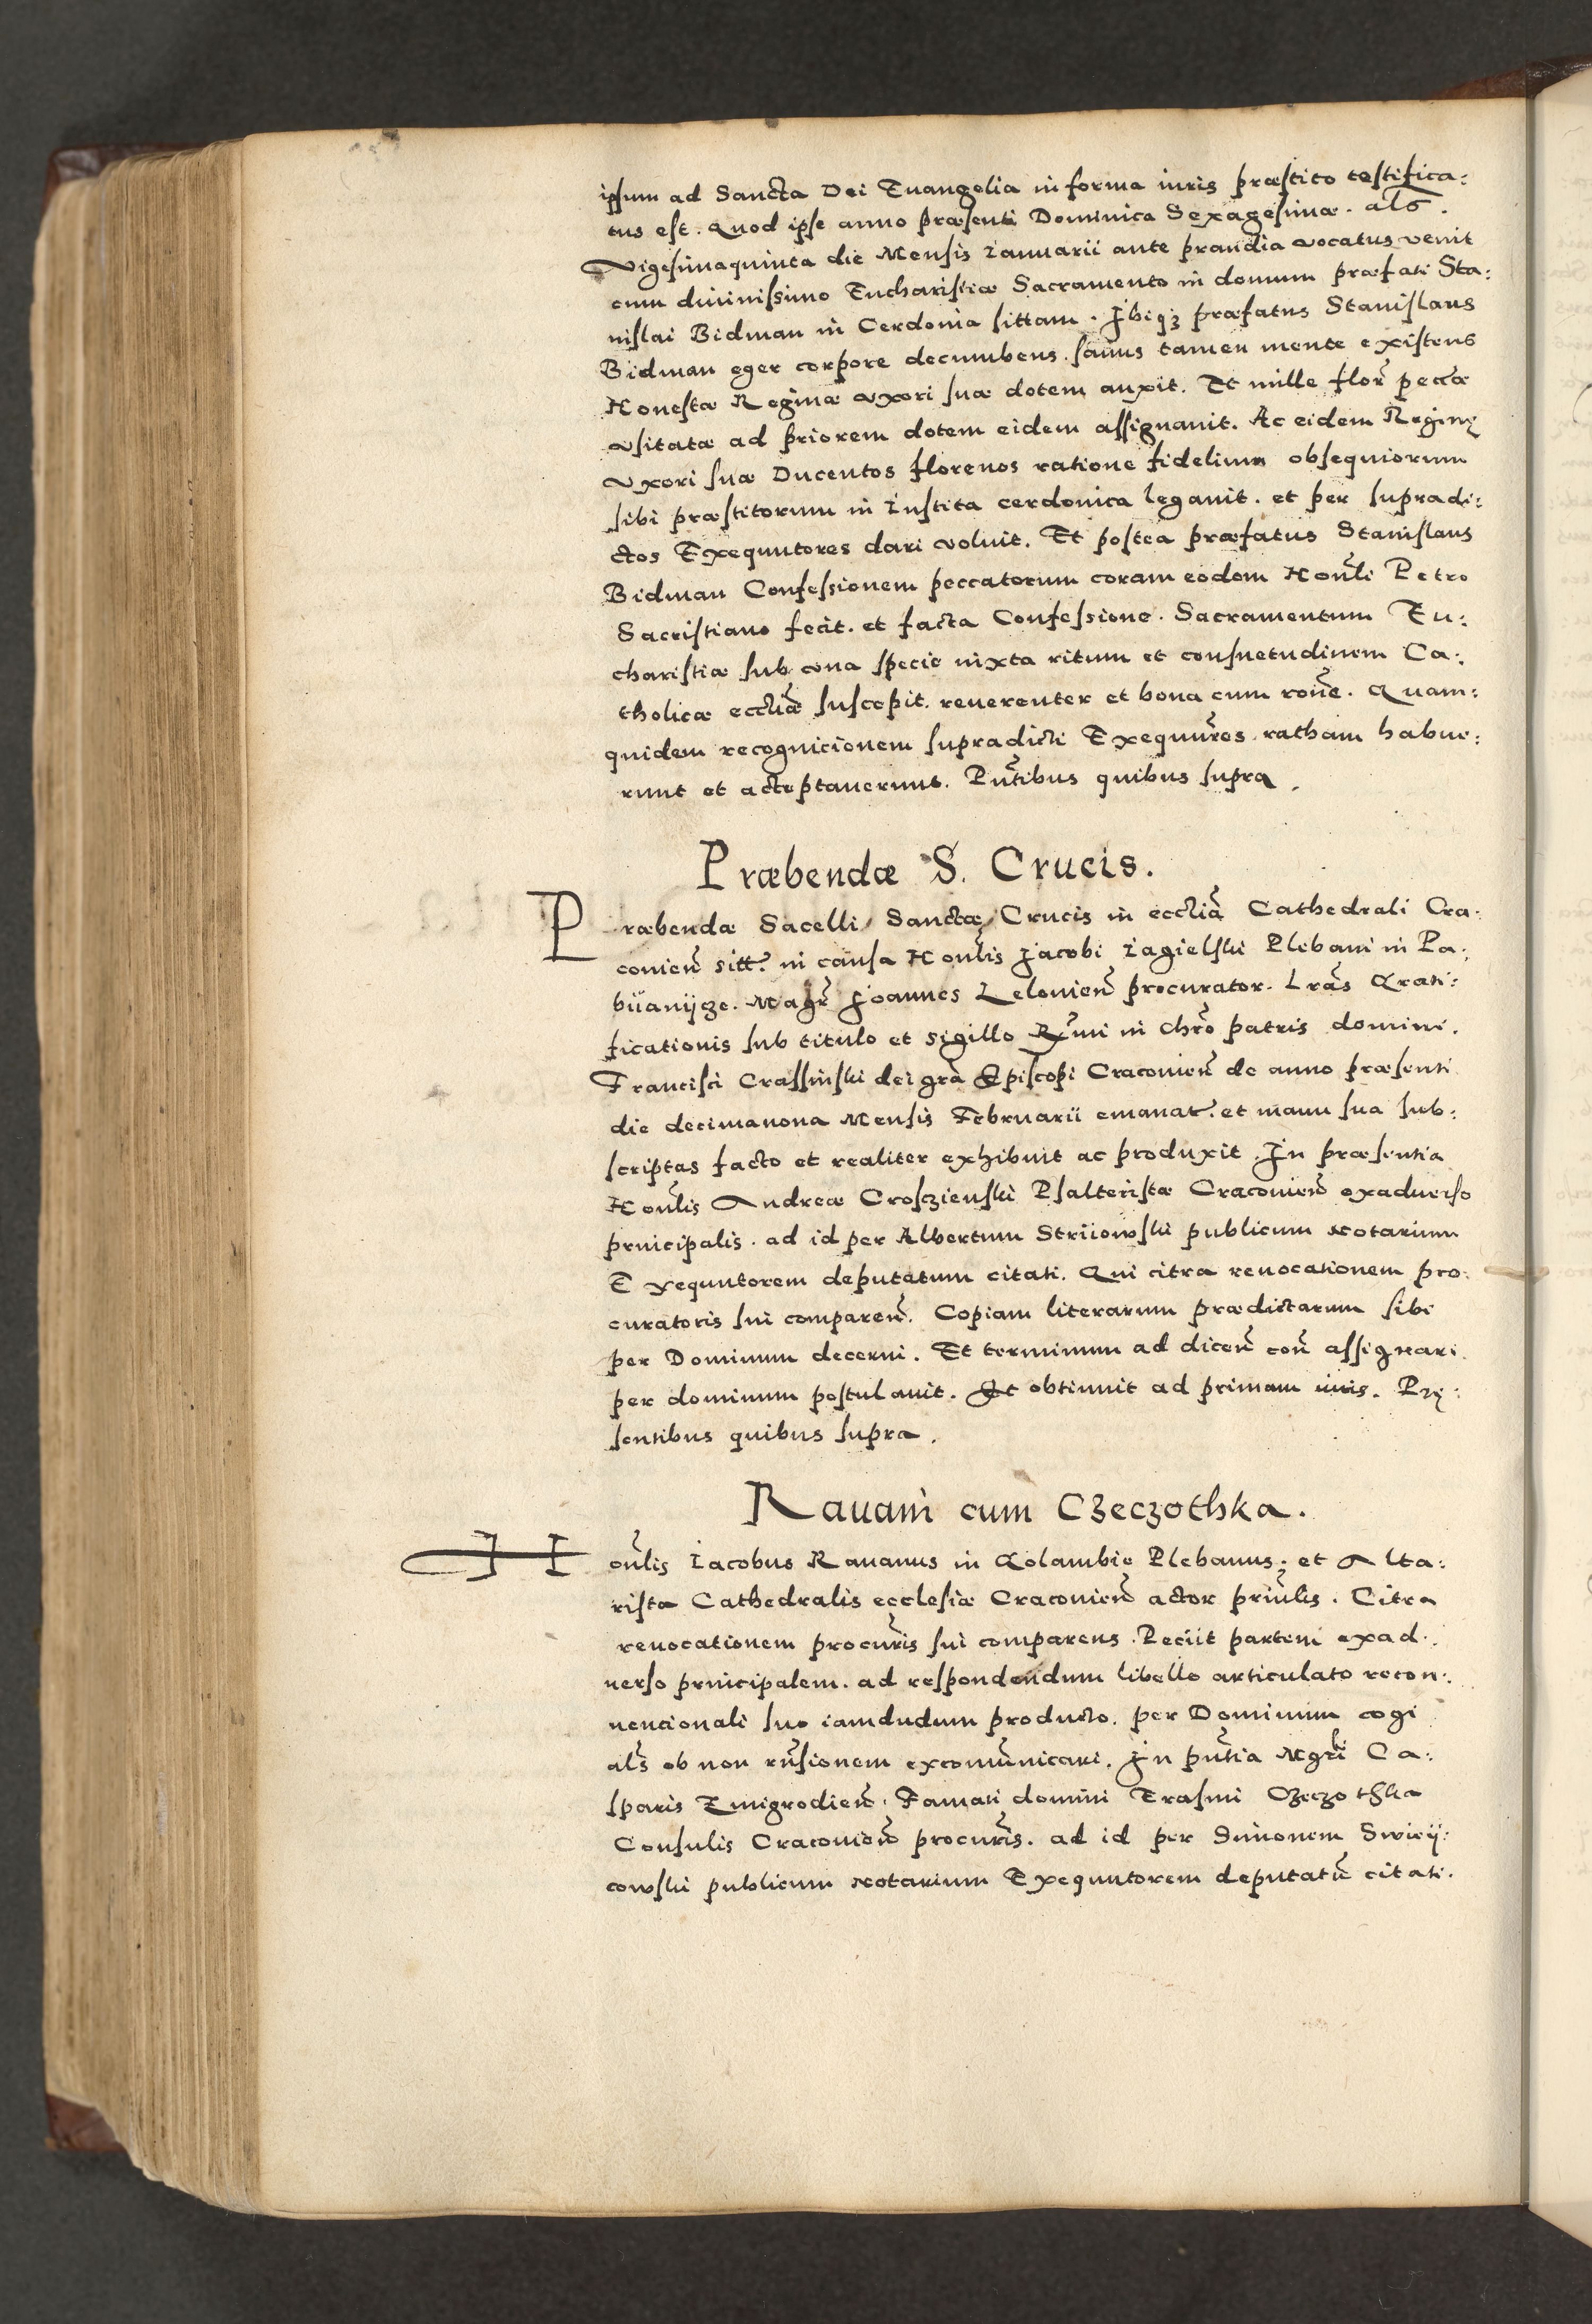 ipsum ad Sancta Dei Euangelia in forma iuris præstito testifica:
tus est. Quod ipse anno præsenti Dominica Sexagesimæ. als.
Vigesimaquinta die Mensis Ianuarii ante prandia vocatus venit
cum diuinissimo Eucharistiæ Sacramento in domum præfati Sta:
nislai Bidman in Cerdonia sittam. Ibiqz præfatus Stanislaus
Bidman eger corpore decumbens. sanus tamen mente existens
Honestæ Reginæ vxori suæ dotem auxit. Et mille flor̃ pecc̃æ
vsitatæ ad priorem dotem eidem assignauit. Ac eidem Reginę
vxori suæ Ducentos florenos ratione fidelium obsequiorum
sibi præstitorum in Instita cerdonica legauit. et per supradi:
ctos Exequutores dari voluit. Et postea præfatus Stanislaus
Bidman Confessionem peccatorum coram eodem Honl̃i Petro
Sacristiano fecit. et facta Confessione. Sacramentum Eu:
charistiæ sub vna specie iuxta ritum et consuetudinem Ca:
tholicæ eccl̃iæ suscepit. reuerenter et bona cum rõne. Quam:
quidem recognicionem supradicti Exequut̃res ratham habue:
runt et acceptauerunt. Pñtibus quibus supra.
Præbendæ S. Crucis.
Præbendæ Sacelli Sanctæ Crucis in eccl̃ia Cathedrali Cra:
couien̄ sitt̃. in causa Honl̃is Jacobi Iagielski Plebani in Pa:
bÿanÿcze. Magr̃ Joannes Lelouien̄ procurator. Lr̃as Qrati:
ficationis sub titulo et sigillo Rm̃i in Chrõ patris domini.
Francisci Crassinski dei grã Episcopi Cracouien̄ de anno præsenti
die decimanona Mensis Februarii emanat̃. et manu sua sub:
scriptas facto et realiter exhibuit ac produxit. In præsentia
Honl̃is Andreæ Crosczienski Psalteristæ Cracouien̄ exaduerso
principalis. ad id per Albertum Striiowski publicum Notarium
Exequutorem deputatum citati. Qui citra reuocationem pro:
curatoris sui comparen̄. Copiam literarum prædictarum sibi
per Dominum decerni. Et terminum ad dicen̄ con̄ assignari
per dominum postulauit. Et obtinuit ad primam iuris. Prę:
sentibus quibus supra.
Rauani cum Czeczothka.
Honl̃is Iacobus Rauanus in Qolambie Plebanus. et Alta:
rista Cathedralis ecclesiæ Cracouien̄ actor prinl̃is. Citra
reuocationem procur̃is sui comparens. Peciit partem exad:
uerso principalem. ad respondendum libello articulato recon:
uencionali suo iamdudum producto. per Dominum cogi
als̃ ob non rn̄sionem excom̃unicari. In pñtia Mgr̃i Ca:
sparis Zmigrodien̄. Famati domini Erasmi Czeczothka
Consulis Cracouien̄ procur̃is. ad id per Simonem Swieÿ:
cowski publicum Notarium Exequutorem deputatũ citati.